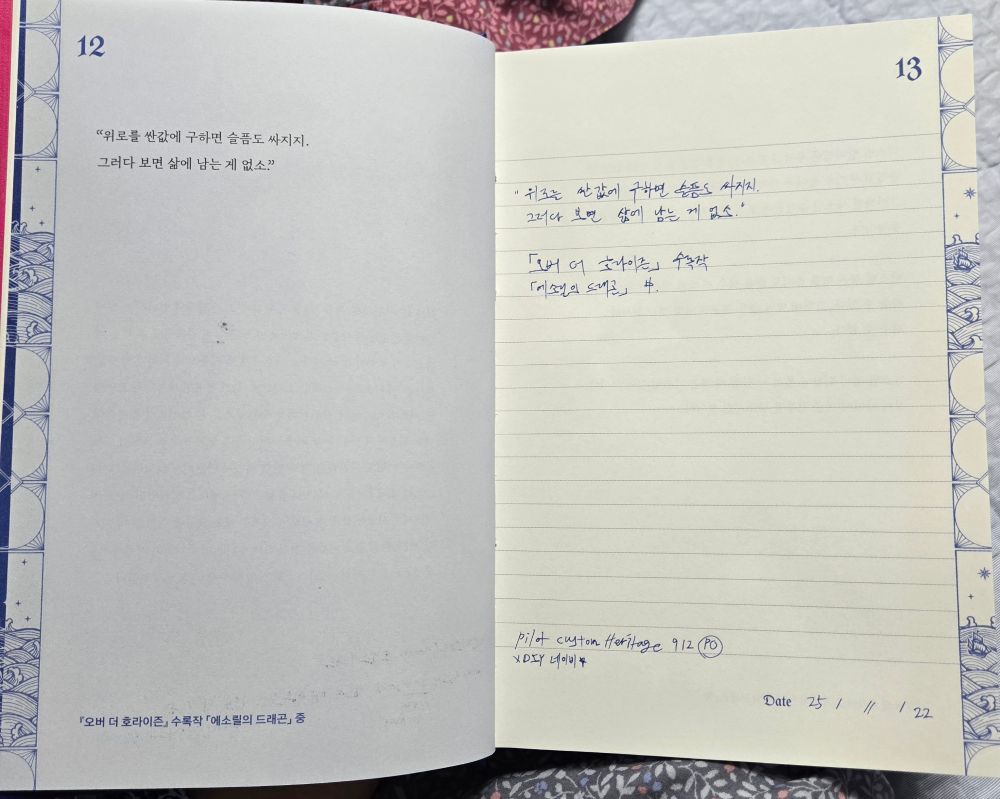 12
“위로를 싼값에 구하면 슬픔도 싸지지.
그러다 보면 삶에 남는 게 없소.”
『오버 더 호라이즌』 수록작 「에소릴의 드래곤」 중
13
"위로는 싼값에 구하면 슬픔도 싸지지.
그러다 보면 삶에 남는 게 없소."
「오버 더 호라이즌」 수록작
「에소릴의 드래곤」 中.
pilot custom Heritage 912 PO
네이비
Date 25 / 11 / 22